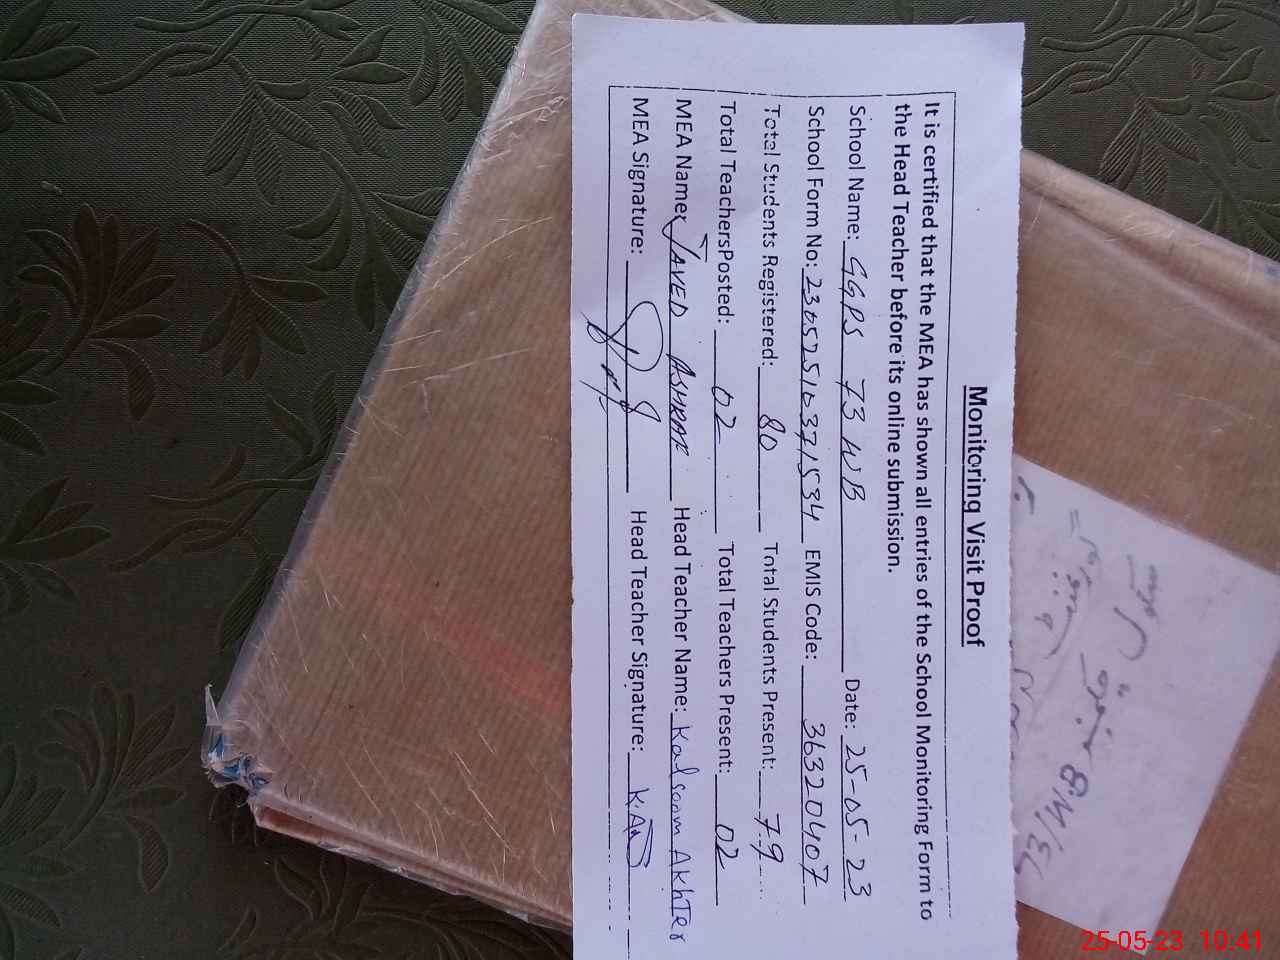 Monitoring Visit Proof
It is certified that the MEA has shown all entries of the School Monitoring Form to
the Head Teacher before its online submission.
School Name: GGPS 73 WB Date: 25-05-23
School Form No: 23052510371534 EMIS Code: 36320407
Total Students Registered: 80 Total Students Present: 79
Total TeachersPosted: 02 Total Teachers Present: 02
MEA Name: JAVED ASHRAF Head Teacher Name: Kalsoom AkhTer
MEA Signature: Head Teacher Signature: K.A
73/W.B
25-05-23 10:41